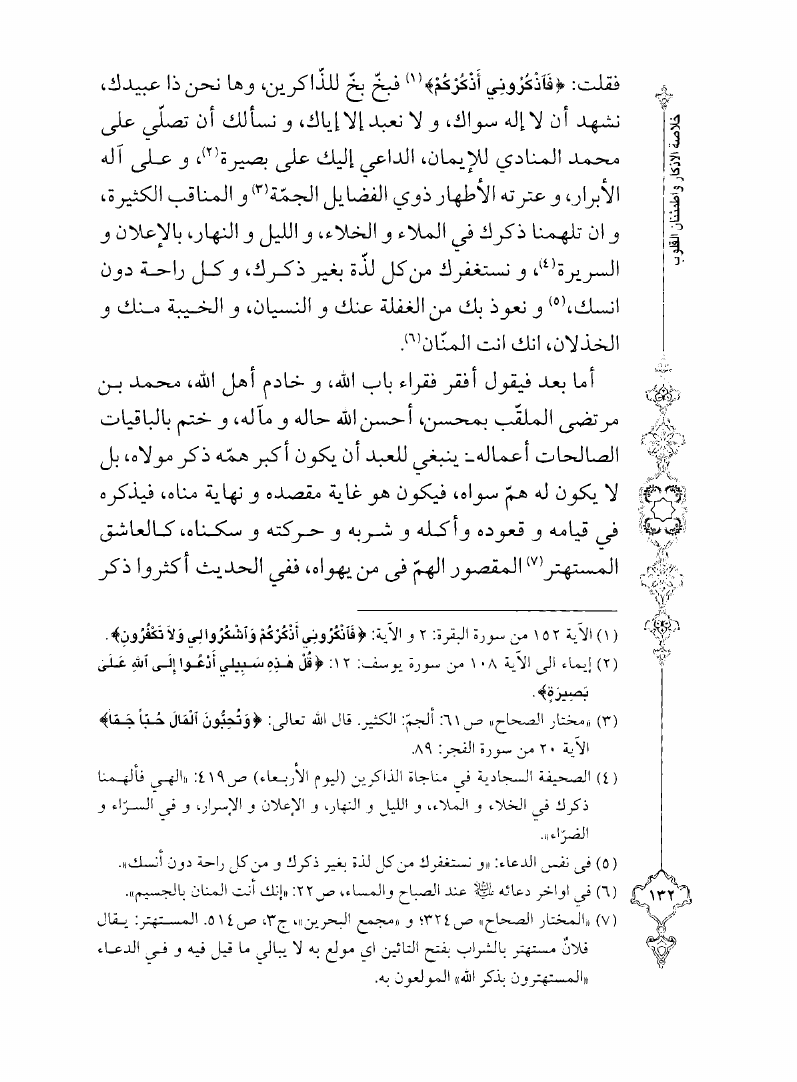 فقلت: ﴿فَٱذْكُرُوني أَذْكُرْكُمْ﴾(١) فبخّ بخّ للذّاكرين، وها نحن ذا عبيدك،
نشهد أن لا إله سواك، و لا نعبد إلا إياك، و نسألك أن تصلّي على
محمد المنادي للإيمان، الداعي إليك على بصيرة(٢)، و على آله
الأبرار، و عترته الأطهار ذوي الفضايل الجمّة(٣) و المناقب الكثيرة،
و ان تلهمنا ذكرك في الملاء و الخلاء، و الليل و النهار، بالإعلان و
السريرة(٤)، و نستغفرك من كل لذّة بغير ذكرك، و كل راحة دون
انسك،(٥) و نعوذ بك من الغفلة عنك و النسيان، و الخيبة منك و
الخذلان، انك انت المنّان(٦).
أما بعد فيقول أفقر فقراء باب الله، و خادم أهل الله، محمد بن
مرتضى الملقّب بمحسن، أحسن الله حاله و مآله، و ختم بالباقيات
الصالحات أعماله-: ينبغي للعبد أن يكون أكبر همّه ذكر مولاه، بل
لا يكون له همّ سواه، فيكون هو غاية مقصده و نهاية مناه، فيذكره
في قيامه و قعوده و أكله و شربه و حركته و سكناه، كالعاشق
المستهتر(٧) المقصور الهمّ فى من يهواه، ففي الحديث أكثروا ذكر
(١) الآية ١٥٢ من سورة البقرة: ٢ و الآية: ﴿فَٱذْكُرُوني أَذْكُرْكُمْ وَٱشْكُرُوا لِي وَلَا تَكْفُرُونِ﴾.
(٢) إيماء الى الآية ١٠٨ من سورة يوسف: ١٢: ﴿قُلْ هَـٰذِهِ سَبِيلي أَدْعُوا إِلَى ٱللهِ عَلَىٰ
بَصِيرَةٍ﴾.
(٣) «مختار الصحاح» ص٦١: ألجمّ: الكثير. قال الله تعالى: ﴿وَتُحِبُّونَ ٱلْمَالَ حُبّاً جَمّاً﴾
الآية ٢٠ من سورة الفجر: ٨٩.
(٤) الصحيفة السجادية في مناجاة الذاكرين (ليوم الأربعاء) ص٤١٩: «الهي فألهمنا
ذكرك في الخلاء و الملاء، و الليل و النهار، و الإعلان و الإسرار، و في السرّاء و
الضرّاء».
(٥) فى نفس الدعاء: «و نستغفرك من كل لذة بغير ذكرك و من كل راحة دون أنسك».
(٦) في اواخر دعائه ﷺ عند الصباح والمساء، ص٢٢: «إنك أنت المنان بالجسيم».
(٧) «المختار الصحاح» ص٣٢٤؛ و «مجمع البحرين»، ج٣، ص٥١٤. المستهتر: يقال
فلانٌ مستهتر بالشراب بفتح التائين اي مولع به لا يبالي ما قيل فيه و في الدعاء
«المستهترون بذكر الله» المولعون به.
خلاصة الاذكار و اطمئنان القلوب
١٣٢